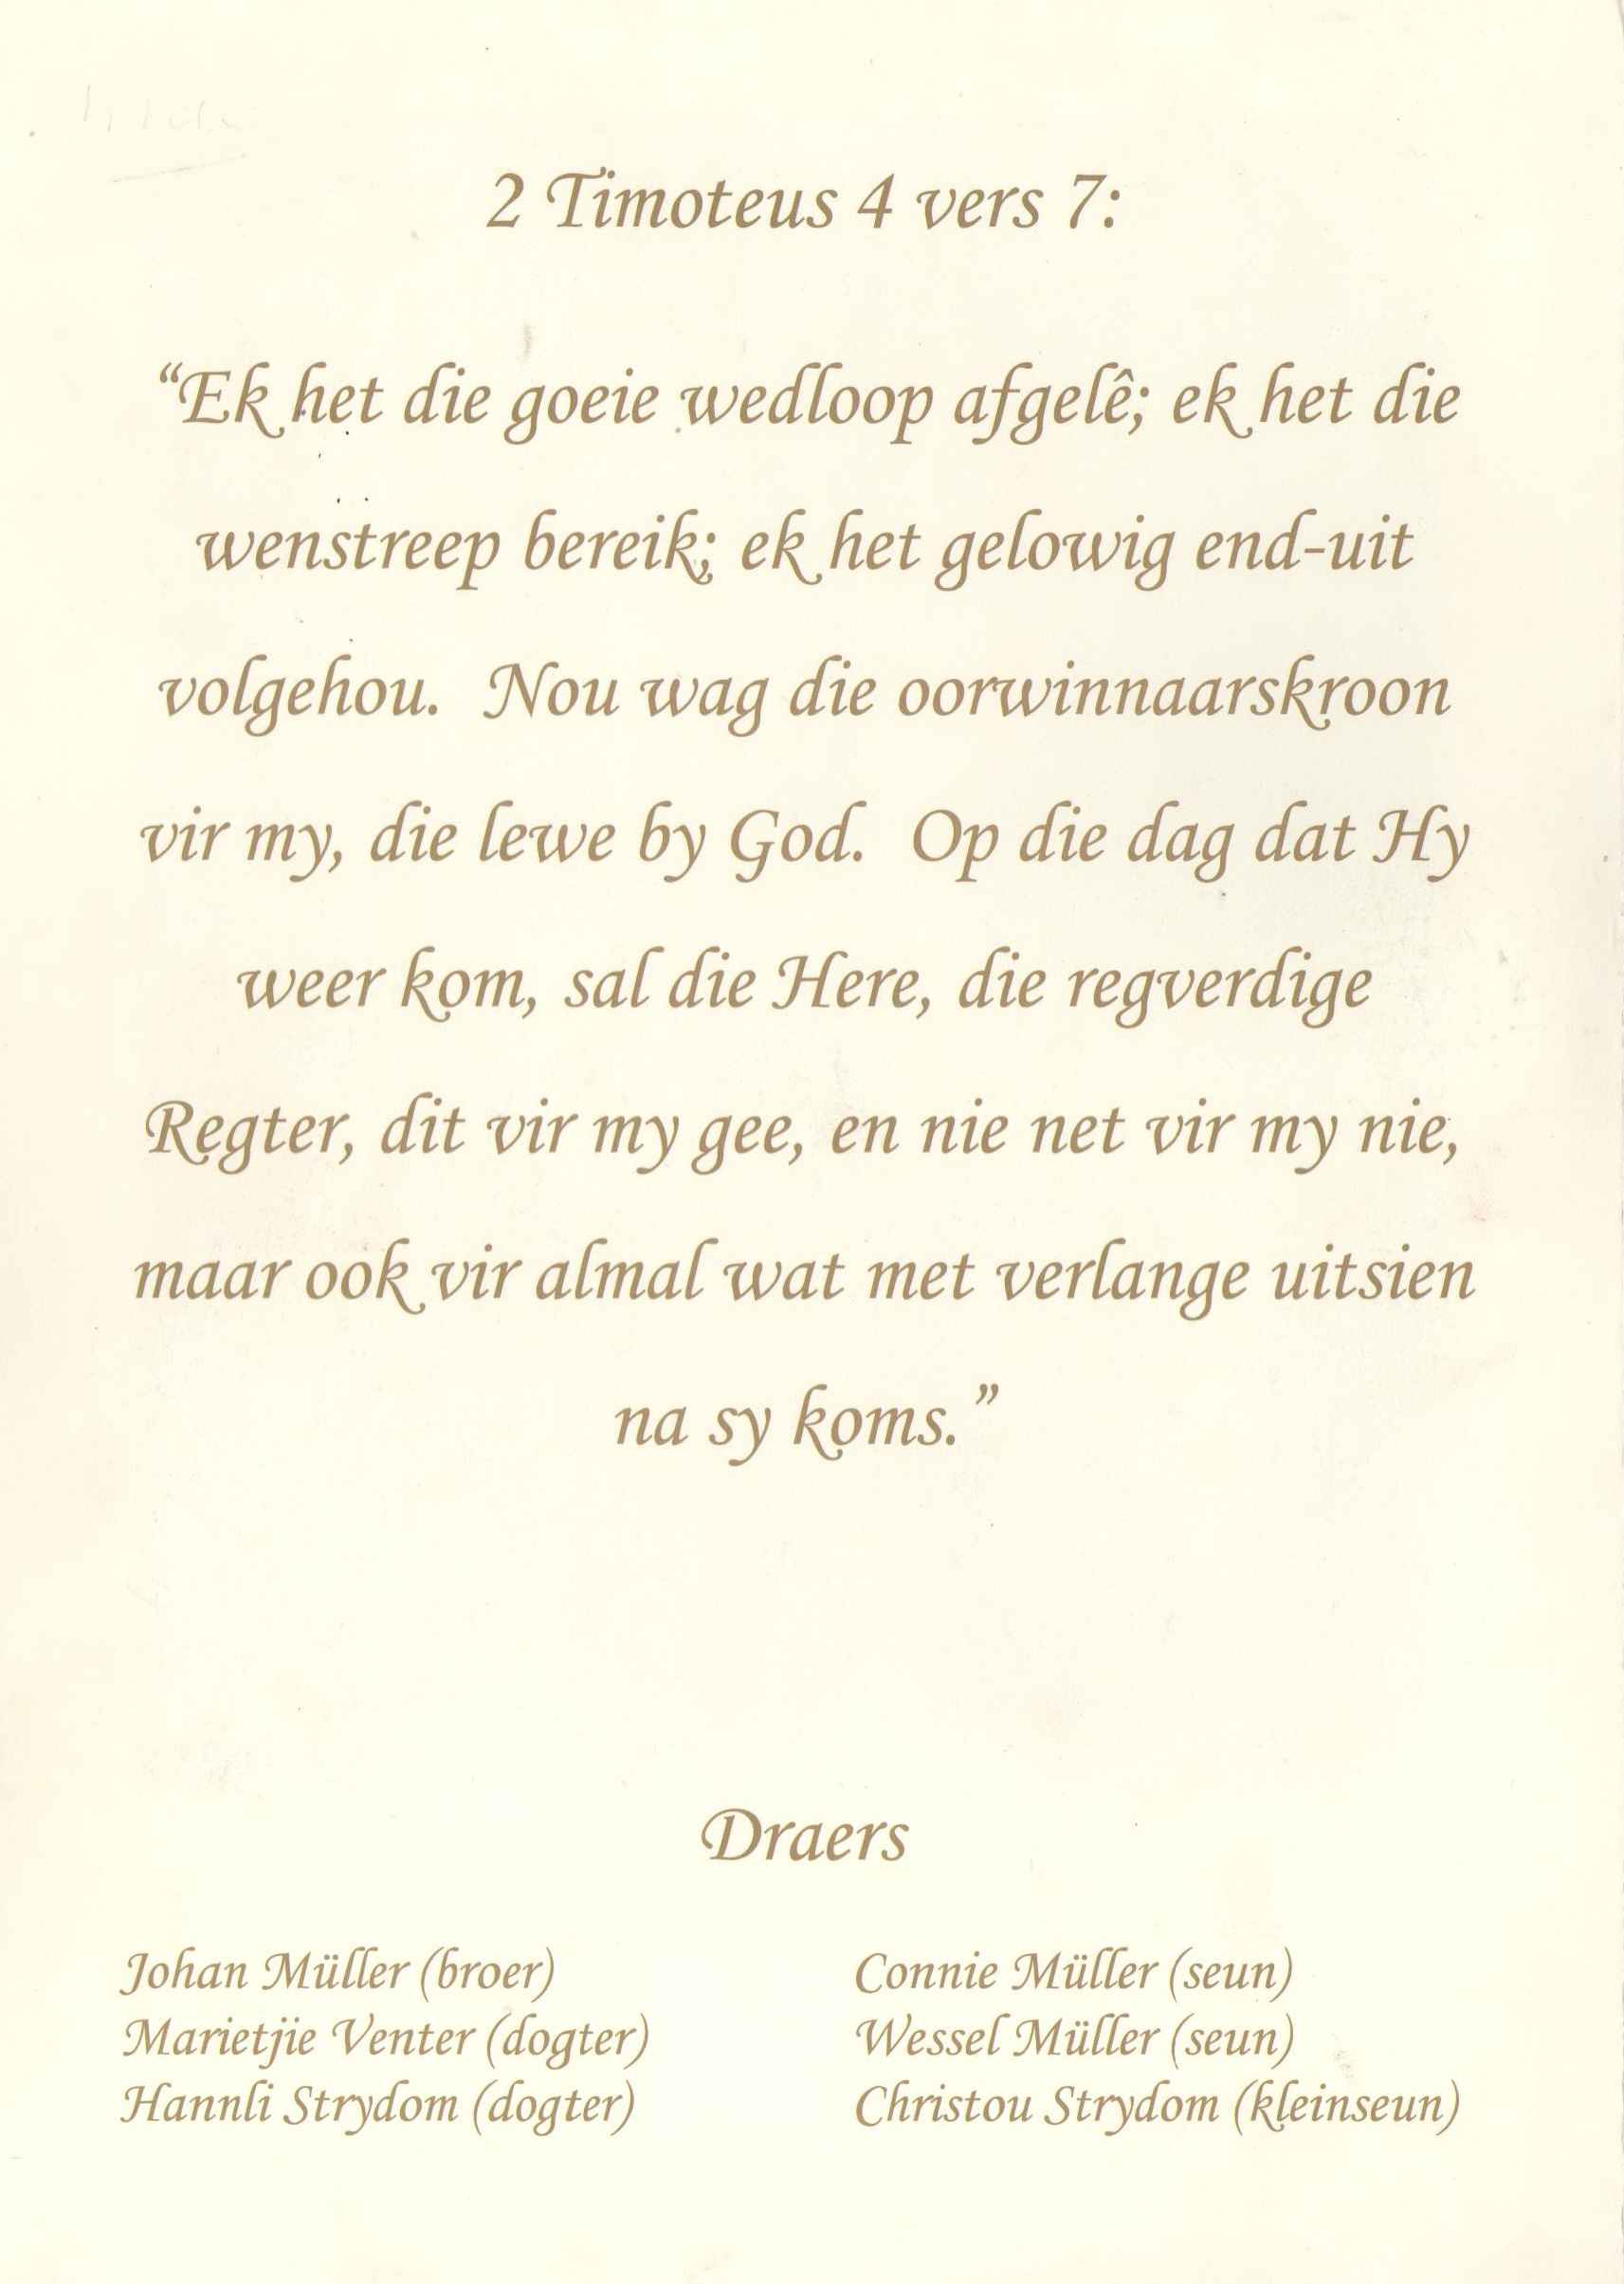 2 Timoteus 4 vers 7:
“Ek het die goeie wedloop afgelê; ek het die
wenstreep bereik; ek het gelowig end-uit
volgehou. Nou wag die oorwinnaarskroon
vir my, die lewe by God. Op die dag dat Hy
weer kom, sal die Here, die regverdige
Regter, dit vir my gee, en nie net vir my nie,
maar ook vir almal wat met verlange uitsien
na sy koms.”
Draers
Johan Müller (broer)
Marietjie Venter (dogter)
Hannli Strydom (dogter)
Connie Müller (seun)
Wessel Müller (seun)
Christou Strydom (kleinseun)